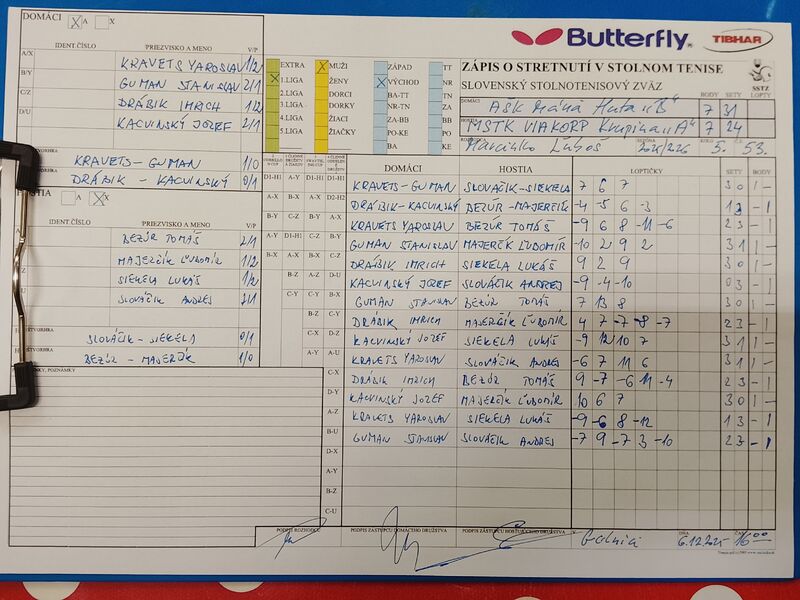 DOMÁCI X A X
Butterfly TIBHAR
IDENT.ČÍSLO PRIEZVISKO A MENO V/P
A/X KRAVETS YAROSLAV 1/2
B/Y GUMAN STANISLAV 2/1
C/Z DRÁBIK IMRICH 1/2
D/U KACVINSKÝ JOZEF 2/1
KRAVETS - GUMAN 1/0
DRÁBIK - KACVINSKÝ 0/1
EXTRA
X 1.LIGA
2.LIGA
3.LIGA
4.LIGA
5.LIGA
X MUŽI
ŽENY
DORCI
DORKY
ŽIACI
ŽIAČKY
ZÁPAD TT
X VÝCHOD NR
BA-TT TN
NR-TN ZA
ZA-BB BB
PO-KE PO
BA KE
ZÁPIS O STRETNUTÍ V STOLNOM TENISE
SLOVENSKÝ STOLNOTENISOVÝ ZVÄZ
SSTZ
BODY SETY LOPTY
DOMÁCI ASK Maná Huta "B" 7 31
HOSTIA MSTK VIAKORP Krupina "A" 7 24
Marcinko Ľuboš SEZÓNA 2025/2026 KOLO 5. 53.
HOSTIA A X X
IDENT.ČÍSLO PRIEZVISKO A MENO V/P
BEZÚR TOMÁŠ 2/1
MAJERČÍK ĽUBOMÍR 1/2
SIEKELA LUKÁŠ 1/2
SLOVÁČIK ANDREJ 2/1
SLOVÁČIK - SIEKELA 0/1
BEZÚR - MAJERČÍK 1/0
POZNÁMKY
DOMÁCI HOSTIA LOPTIČKY SETY BODY
KRAVETS - GUMAN SLOVÁČIK - SIEKELA 7 6 7 3 0 1 -
DRÁBIK - KACVINSKÝ BEZÚR - MAJERČÍK -4 -5 6 -3 1 3 - 1
KRAVETS YAROSLAV BEZÚR TOMÁŠ -9 6 8 -11 -6 2 3 - 1
GUMAN STANISLAV MAJERČÍK ĽUBOMÍR -10 2 9 2 3 1 1 -
DRÁBIK IMRICH SIEKELA LUKÁŠ 9 2 9 3 0 1 -
KACVINSKÝ JOZEF SLOVÁČIK ANDREJ -9 -4 -10 0 3 - 1
GUMAN STANISLAV BEZÚR TOMÁŠ 7 13 8 3 0 1 -
DRÁBIK IMRICH MAJERČÍK ĽUBOMÍR 4 7 -7 -8 -7 2 3 - 1
KACVINSKÝ JOZEF SIEKELA LUKÁŠ -9 12 10 7 3 1 1 -
KRAVETS YAROSLAV SLOVÁČIK ANDREJ -6 7 11 6 3 1 1 -
DRÁBIK IMRICH BEZÚR TOMÁŠ 9 -7 -6 11 -4 2 3 - 1
KACVINSKÝ JOZEF MAJERČÍK ĽUBOMÍR 10 6 7 3 0 1 -
KRAVETS YAROSLAV SIEKELA LUKÁŠ -9 -6 8 -12 1 3 - 1
GUMAN STANISLAV SLOVÁČIK ANDREJ -7 9 -7 3 -10 2 3 - 1
PODPIS ROZHODCU PODPIS ZÁSTUPCU DOMÁCEHO DRUŽSTVA PODPIS ZÁSTUPCU HOSŤUJÚCEHO DRUŽSTVA
DŇA 6.12.2025 16:00